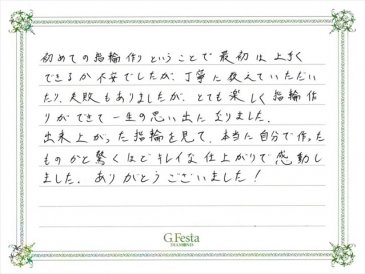 初めての指輪作りということで最初は上手く
できるか不安でしたが、丁寧に教えていただい
たり、失敗もありましたが、とても楽しく指輪作
りができて一生の思い出になりました。
出来上がった指輪を見て、本当に自分で作った
ものかと驚くほどキレイな仕上がりで感動し
ました。ありがとうございました!
G.Festa
DIAMOND